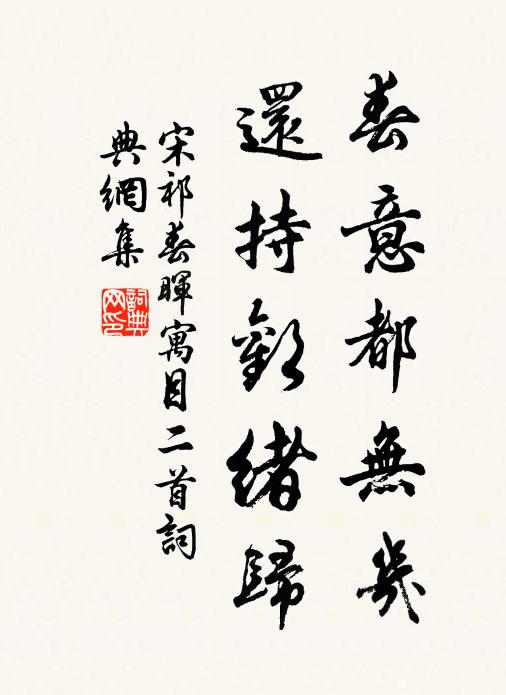 春意都無幾
還持歡緒歸
宋祁春暉寓目二首詞
典網集
詞典网印